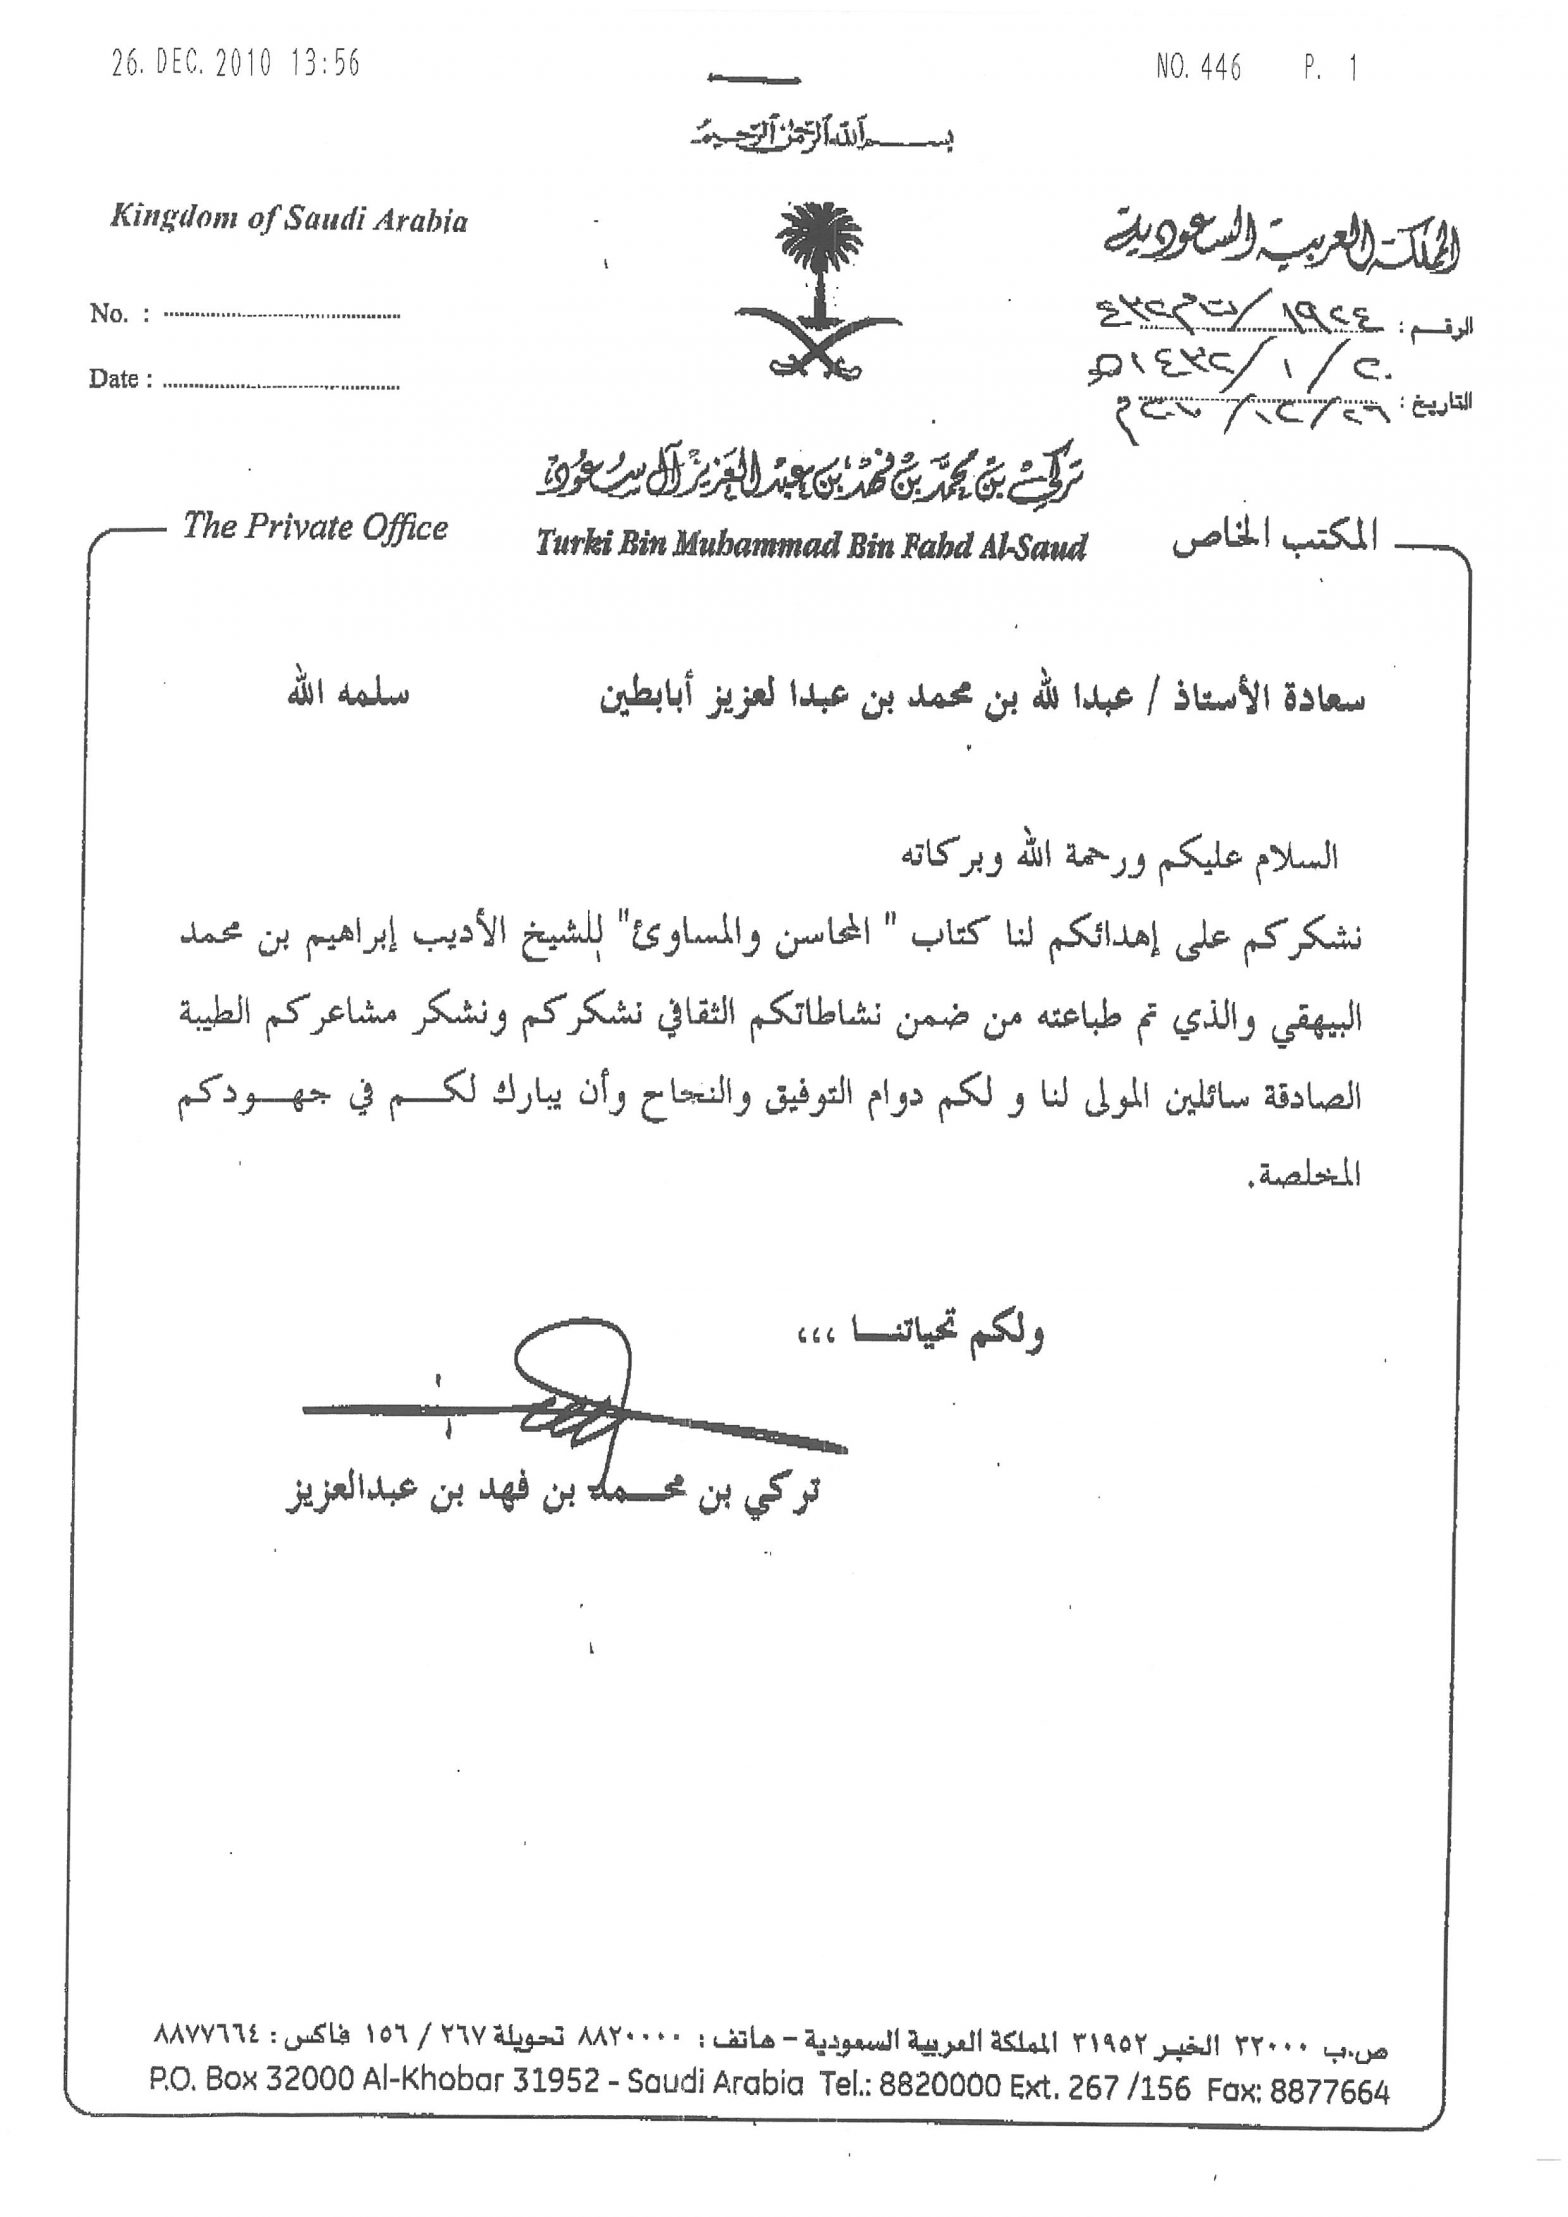 26. DEC. 2010 13:56 NO. 446 P. 1
بسم الله الرحمن الرحيم
Kingdom of Saudi Arabia
المملكة العربية السعودية
No. :
الرقم : ١٩٢٤/
Date :
التاريخ : ٢٠/ ١ /١٤٣٢هـ
٢٦/١٢/٢٠١٠م
تركي بن محمد بن فهد بن عبد العزيز آل سعود
The Private Office
Turki Bin Muhammad Bin Fahd Al-Saud
المكتب الخاص
سعادة الأستاذ / عبدا لله بن محمد بن عبدا لعزيز أبابطين سلمه الله
السلام عليكم ورحمة الله وبركاته
نشكركم على إهدائكم لنا كتاب " المحاسن والمساوئ" للشيخ الأديب إبراهيم بن محمد
البيهقي والذي تم طباعته من ضمن نشاطاتكم الثقافي نشكركم ونشكر مشاعركم الطيبة
الصادقة سائلين المولى لنا و لكم دوام التوفيق والنجاح وأن يبارك لكـــم في جهـــودكم
المخلصة.
ولكم تحياتنـــا ،،،
تركي بن محـــمد بن فهد بن عبدالعزيز
ص.ب ٣٢٠٠٠ الخبر ٣١٩٥٢ المملكة العربية السعودية – هاتف : ٨٨٢٠٠٠٠ تحويلة ٢٦٧ / ١٥٦ فاكس : ٨٨٧٧٦٦٤
P.O. Box 32000 Al-Khobar 31952 - Saudi Arabia Tel.: 8820000 Ext. 267 /156 Fax: 8877664